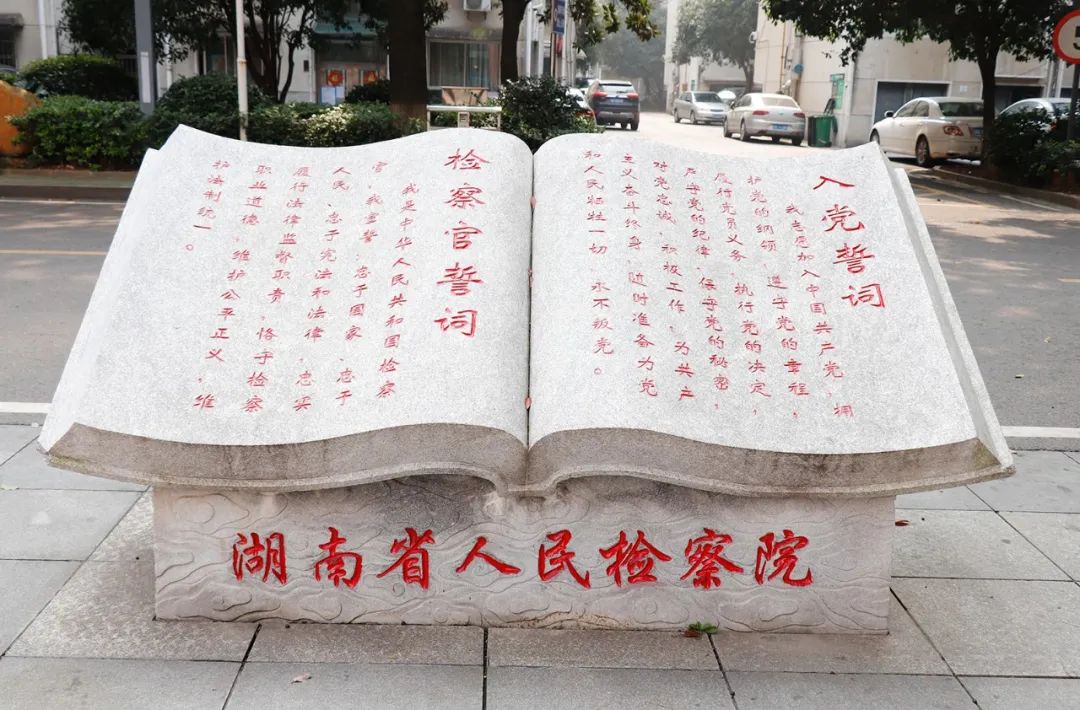 入党誓词
我志愿加入中国共产党，拥
护党的纲领，遵守党的章程，
履行党员义务，执行党的决定，
严守党的纪律，保守党的秘密，
对党忠诚，积极工作，为共产
主义奋斗终身，随时准备为党
和人民牺牲一切，永不叛党。
检察官誓词
我是中华人民共和国检察
官，我宣誓：忠于国家、忠于
人民、忠于宪法和法律，忠实
履行法律监督职责，恪守检察
职业道德，维护公平正义，维
护法制统一。
湖南省人民检察院
5